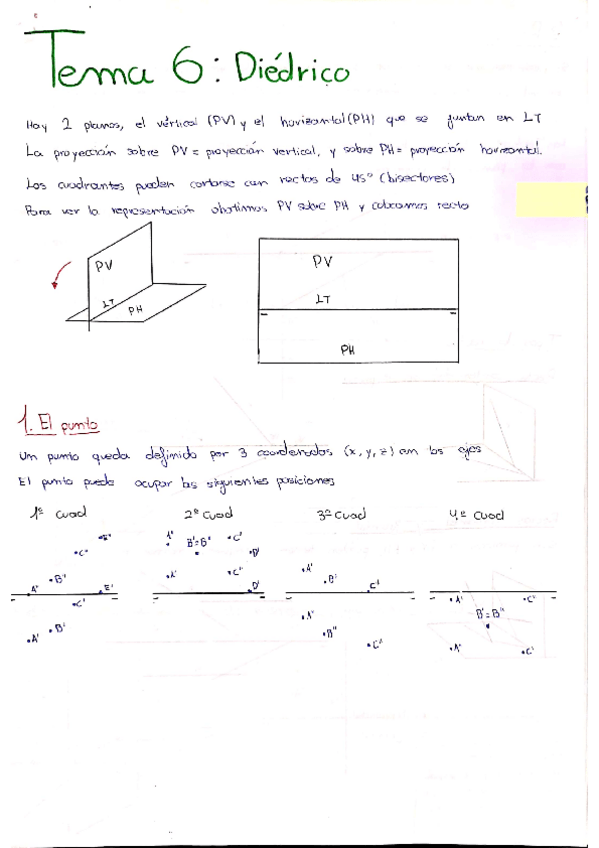 Tema 6: Diédrico
Hay 2 planos, el vértical (PV) y el horizontal (PH) que se juntan en LT
La proyección sobre PV = proyección vertical, y sobre PH = proyección horizontal.
Los cuadrantes pueden cortarse con rectas de 45° (bisectores)
Para ver la representación abatimos PV sobre PH y colocamos recto
PV
LT
PH
PV
LT
PH
1. El punto
Un punto queda definido por 3 coordenadas (x, y, z) con los ejes
El punto puede ocupar las siguientes posiciones
1º cuad 2º cuad 3º cuad 4º cuad